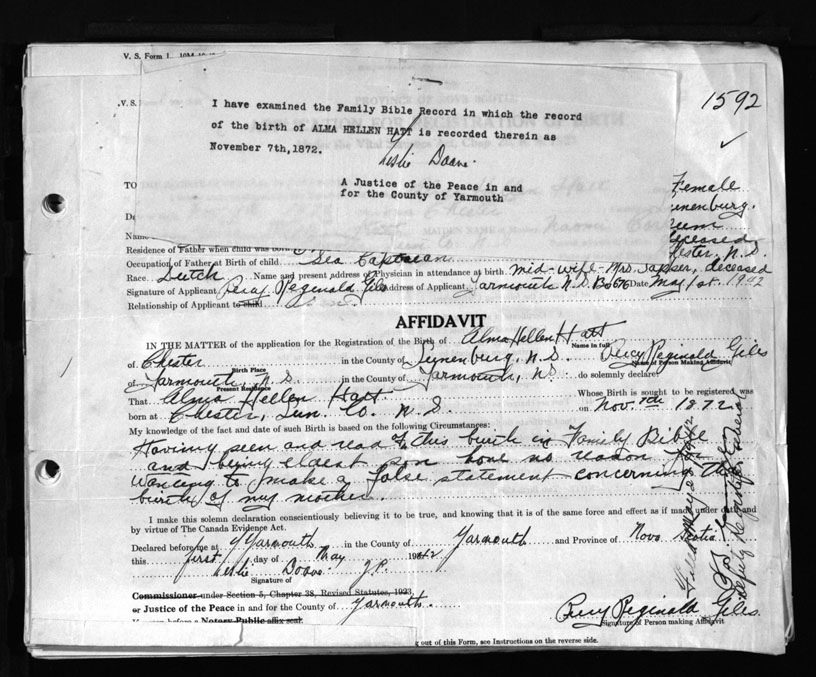 V. S. Form 1.
1592
V.S.
I have examined the Family Bible Record in which the record
of the birth of ALMA HELLEN HATT is recorded therein as
November 7th,1872.
Leslie Doane.
A Justice of the Peace in and
for the County of Yarmouth
TO
Female
Lunenburg.
De
Name
deceased
Chester, N.S.
Residence of Father when child was born
Occupation of Father at Birth of child Sea Captain
Race Dutch Name and present address of Physician in attendance at birth mid-wife-Mrs. deceased
Signature of Applicant Percy Reginald Giles Address of Applicant Yarmouth N.S. Box 676 Date May 1st. 1942
Relationship of Applicant to child
AFFIDAVIT
IN THE MATTER of the application for the Registration of the Birth of Alma Hellen Hatt
Name in full
of Chester in the County of Lunenburg, N.S. Percy Reginald Giles
Birth Place Name of Person Making Affidavit
of Yarmouth, N.S. in the County of Yarmouth, N.S. do solemnly declare
Present Residence
That Alma Hellen Hatt Whose Birth is sought to be registered was
born at Chester, Lun. Co. N.S. on Nov. 7th 1872
My knowledge of the fact and date of such Birth is based on the following Circumstances:
Having seen and read of this birth in Family Bible
and being eldest son have no reason for
wanting to make a false statement concerning the
birth of my mother.
I make this solemn declaration conscientiously believing it to be true, and knowing that it is of the same force and effect as if made under oath and
by virtue of The Canada Evidence Act.
Declared before me at Yarmouth in the County of Yarmouth and Province of Nova Scotia
this first day of May 1942
Leslie Doane J.P.
Signature of
Commissioner under Section 5, Chapter 38, Revised Statutes, 1923
or Justice of the Peace in and for the County of Yarmouth.
Notary Public affix seal.
Percy Reginald Giles.
Signature of Person making Affidavit
out of this Form, see Instructions on the reverse side.
Filed May
Deputy Registrar General